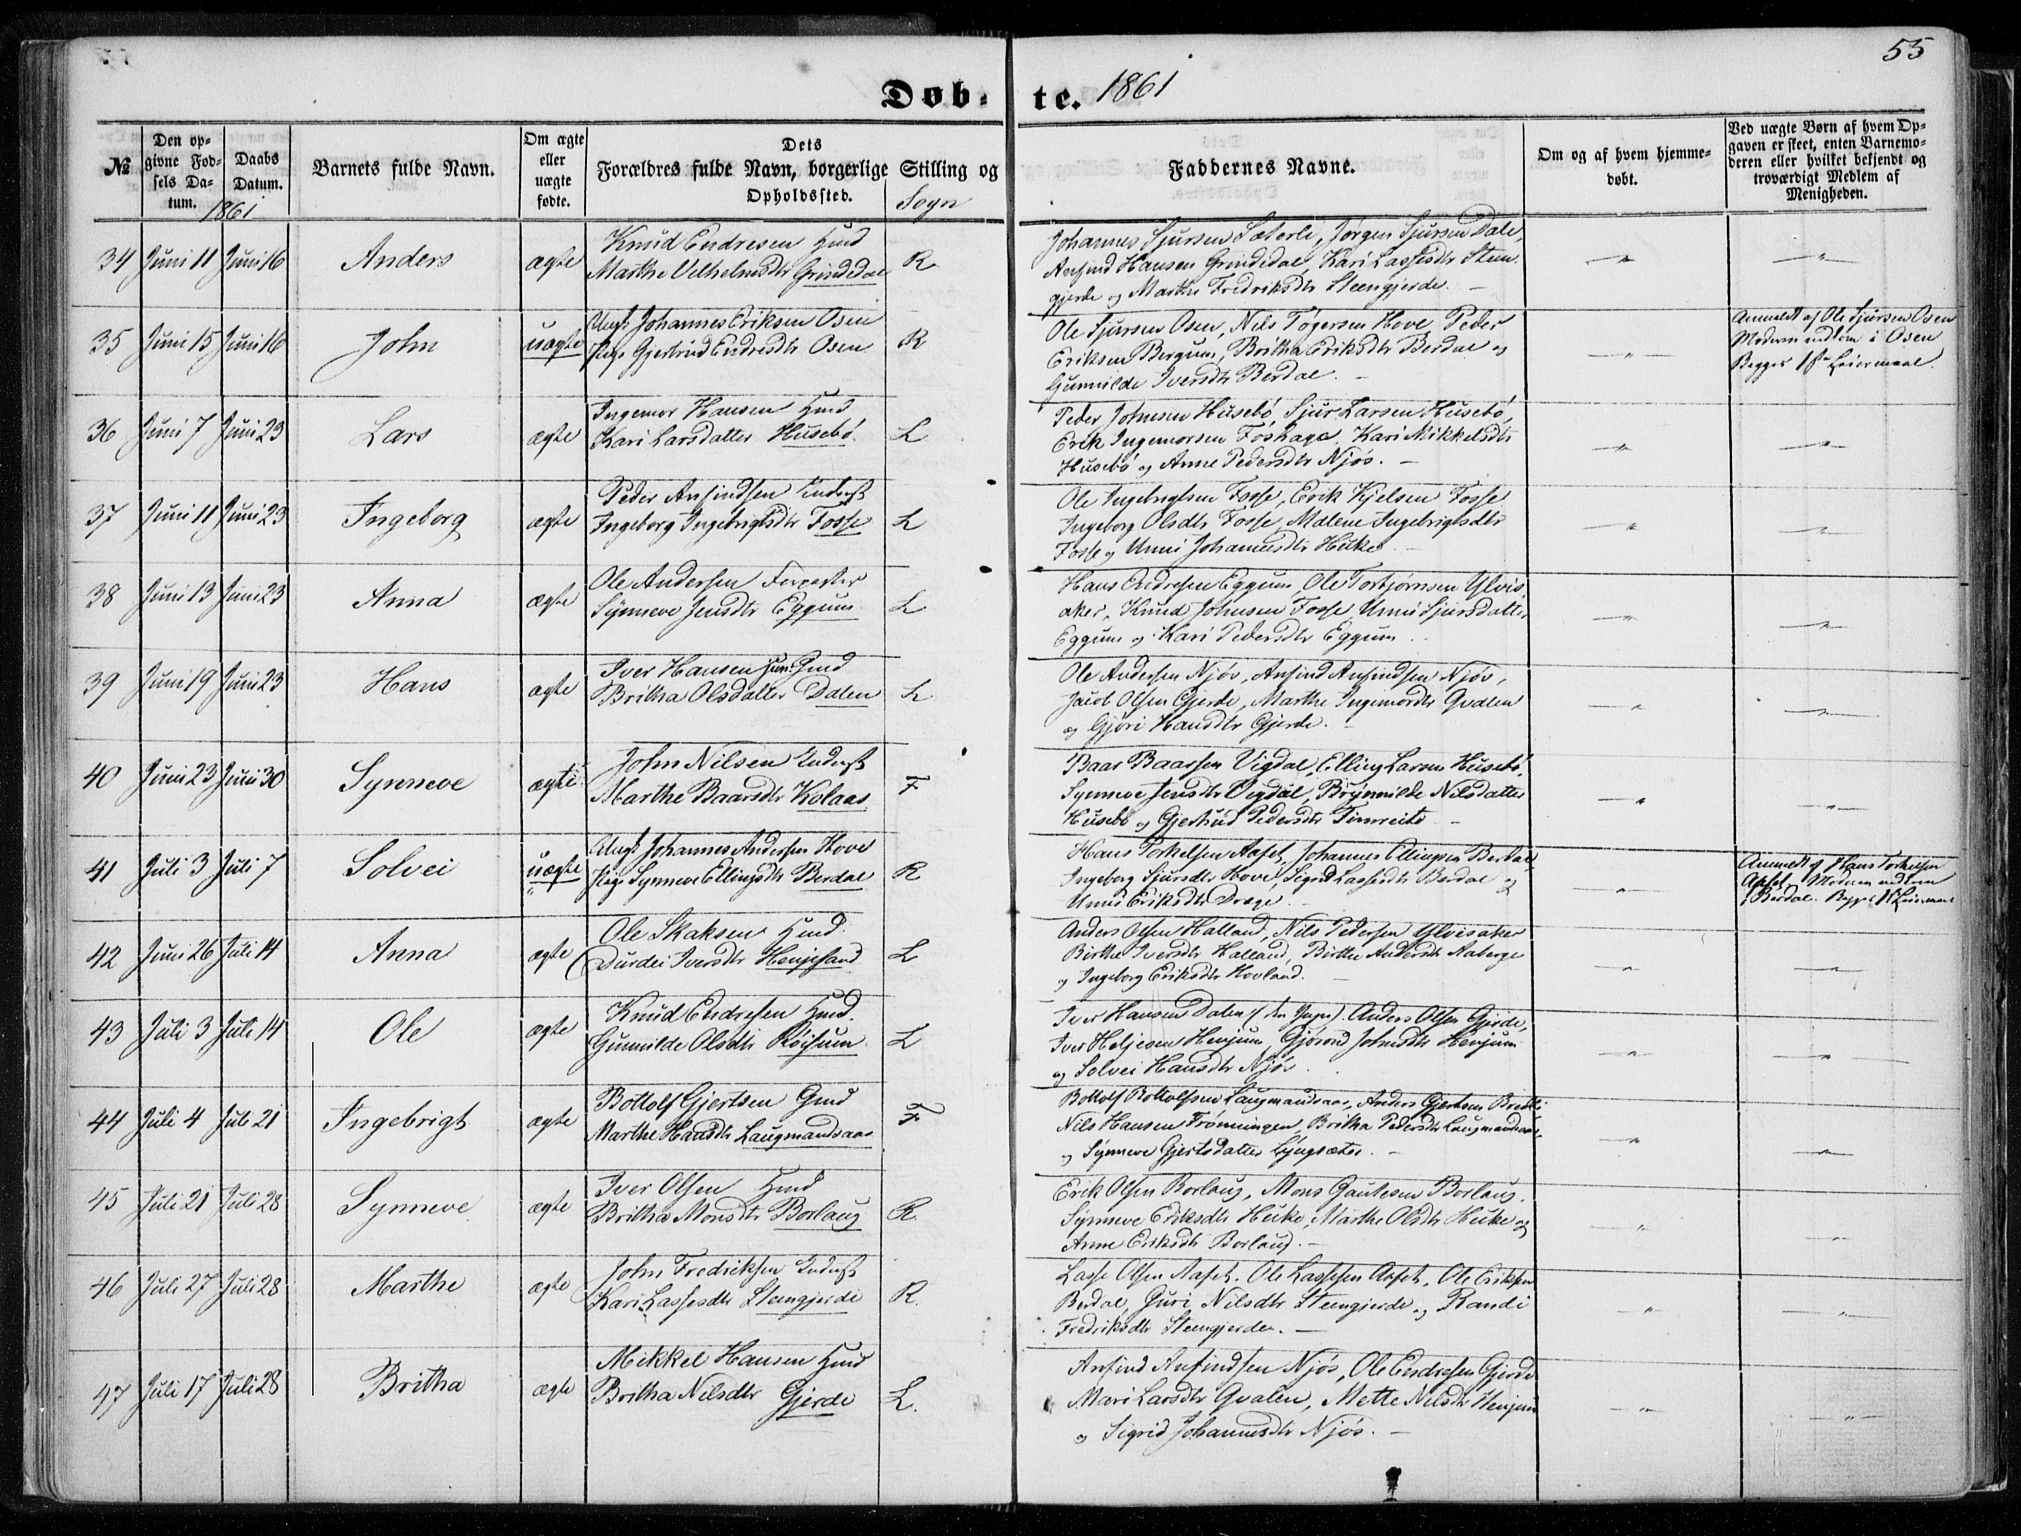 55
Døb-te. 1861
№
Den opgivne Fødsels Datum.
Daabs Datum.
1861
Barnets fulde Navn.
Om ægte eller uægte fødte.
Dets Forældres fulde Navn, borgerlige Stilling og Opholdssted.
Sogn
Faddernes Navne.
Om og af hvem hjemmedøbt.
Ved uægte Børn af hvem Opgaven er skeet, enten Barnemoderen eller hvilket bekjendt og troværdigt Medlem af Menigheden.
34 Juni 11 Juni 16 Anders ægte
Knud Endresen Hmd
Marthe Vilhelmsdtr Grindedal R
Johannes Sjursen Sæterli, Jørgen Sjursen Dale,
Anfind Hansen Grindedal, Kari Lassesdtr Steen
gjerde og Marthe Fredriksdtr Steengjerde.
35 Juni 15 Juni 16 John uægte
Ungk Johannes Eriksen Osen
Pige Gjertrud Endresdtr Osen R
Ole Sjursen Osen, Nils Tøgersen Hove, Peder
Eriksen Bergum, Britha Eriksdtr Berdal og
Gunnilde Iversdtr Berdal.
Anmeldt af Ole Sjursen Osen
Moderen indlem i Osen
Begges 1ste Leiermaal.
36 Juni 7 Juni 23 Lars ægte
Ingemor Hansen Hmd
Kari Larsdatter Husebö. L
Peder Johnsen Husebö, Sjur Larsen Husebö,
Erik Ingemorsen Foshage, Kari Mikkelsdtr
Husebö og Anne Pedersdtr Njøs.
37 Juni 11 Juni 23 Ingeborg ægte
Peder Anfindsen Inderst
Ingeborg Ingebrigtsdtr Fosse L
Ole Ingebrigtsen Fosse, Erik Kjelsen Fosse
Ingeborg Olsdtr Fosse, Malene Ingebrigtsdtr
Fosse og Unni Johannesdtr Huke
38 Juni 13 Juni 23 Anna ægte
Ole Andersen Forpagter
Synneve Jensdtr Eggum L
Hans Endresen Eggum, Ole Torbjørnsen Ylvis
aker, Knud Johnsen Fosse, Unni Sjursdatter
Eggum og Kari Pedersdtr Eggum
39 Juni 19 Juni 23 Hans ægte
Iver Hansen jun Gmd
Britha Olsdatter Dalen L
Ole Andersen Njøs, Anfind Anfindsen Njøs,
Jacob Olsen Gjerde, Marthe Ingemorsdtr Qvalen
og Gjöri Hansdtr Gjerde.
40 Juni 23 Juni 30 Synneve ægte
John Nilsen Inderst
Marthe Baarsdtr Kolaas F
Baar Baarsen Vigdal, Elling Larsen Husebö,
Synneve Jensdtr Vigdal, Brynnilde Nilsdatter
Husebö og Gjertrud Pedersdtr Fimreite
41 Juli 3 Juli 7 Solvei uægte
Ungk Johannes Andersen Hove
Pige Synneve Ellingsdtr Berdal R
Hans Torkelsen Aafet, Johannes Ellingsen Berdal,
Ingeborg Sjursdtr Hove, Sigrid Lassesdtr Berdal og
Unni Eriksdtr Dræge.
Anmeldt af Hans Torkelsen
Aafet, Moderen indlem
i Berdal. Begges 1ste Leiermaal
42 Juni 26 Juli 14 Anna ægte
Ole Skaksen Hmd.
Durdei Iversdtr Henjesand L
Anders Olsen Halland, Nils Pedersen Ylvisaker
Birthe Iversdtr Halland, Birthe Andersdtr Aaberge
og Ingeborg Eriksdtr Hovland.
43 Juli 3 Juli 14 Ole ægte
Knud Endresen Hmd.
Gunnilde Olsdtr Röisum L
Iver Hansen Dalen (den Yngre), Anders Olsen Gjerde,
Iver Heljesen Henjum, Gjörond Johnsdtr Henjum
og Solvei Hansdtr Njøs.
44 Juli 4 Juli 21 Ingebrigt ægte
Bottolf Gjertsen Gmd
Marthe Hansdtr Laugmandsaas F
Bottolf Bottolfsen Laugmandsaas, Anders Gjertsen
Nils Hansen Frønningen, Britha Pedersdtr Laugmandsaas,
og Synneve Gjertsdatter Lyngsæter.
45 Juli 21 Juli 28 Synneve ægte
Iver Olsen Hmd
Britha Monsdtr Borlaug R.
Erik Olsen Borlaug, Mons Gautesen Borlaug.
Synneve Eriksdtr Huke, Marthe Olsdtr Huke og
Anne Eriksdtr Borlaug.
46 Juli 27 Juli 28 Marthe ægte
John Fredriksen Inderst
Kari Lassesdtr Steengjerde R.
Lasse Olsen Aafet, Ole Lassesen Aafet, Ole Eriksen
Berdal, Guri Nilsdtr Steengjerde og Randi
Fredriksdtr Steengjerde.
47 Juli 17 Juli 28 Britha ægte
Mikkel Hansen Hmd
Britha Nilsdtr Gjerde L.
Anfind Anfindsen Njøs, Ole Endresen Gjerde
Mari Larsdtr Qvalen, Mette Nilsdtr Henjum
og Sigrid Johannesdtr Njøs.